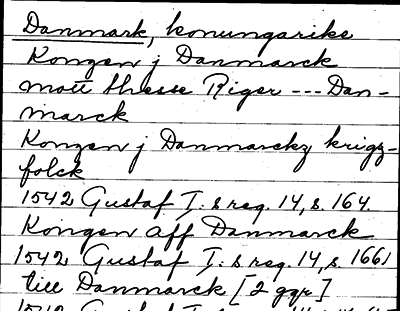 Danmark, konungarike
Kongen j Danmarck
mott thesse Riger --- Dan-
marck
Kongen j Danmarckz krigz-
folck
1542 Gustaf I:s reg. 14, s. 164.
Kongen aff Danmarck
1542 Gustaf I:s reg. 14, s. 166
till Danmarck [2 ggr]
1542 Gustaf I:s reg. 14,